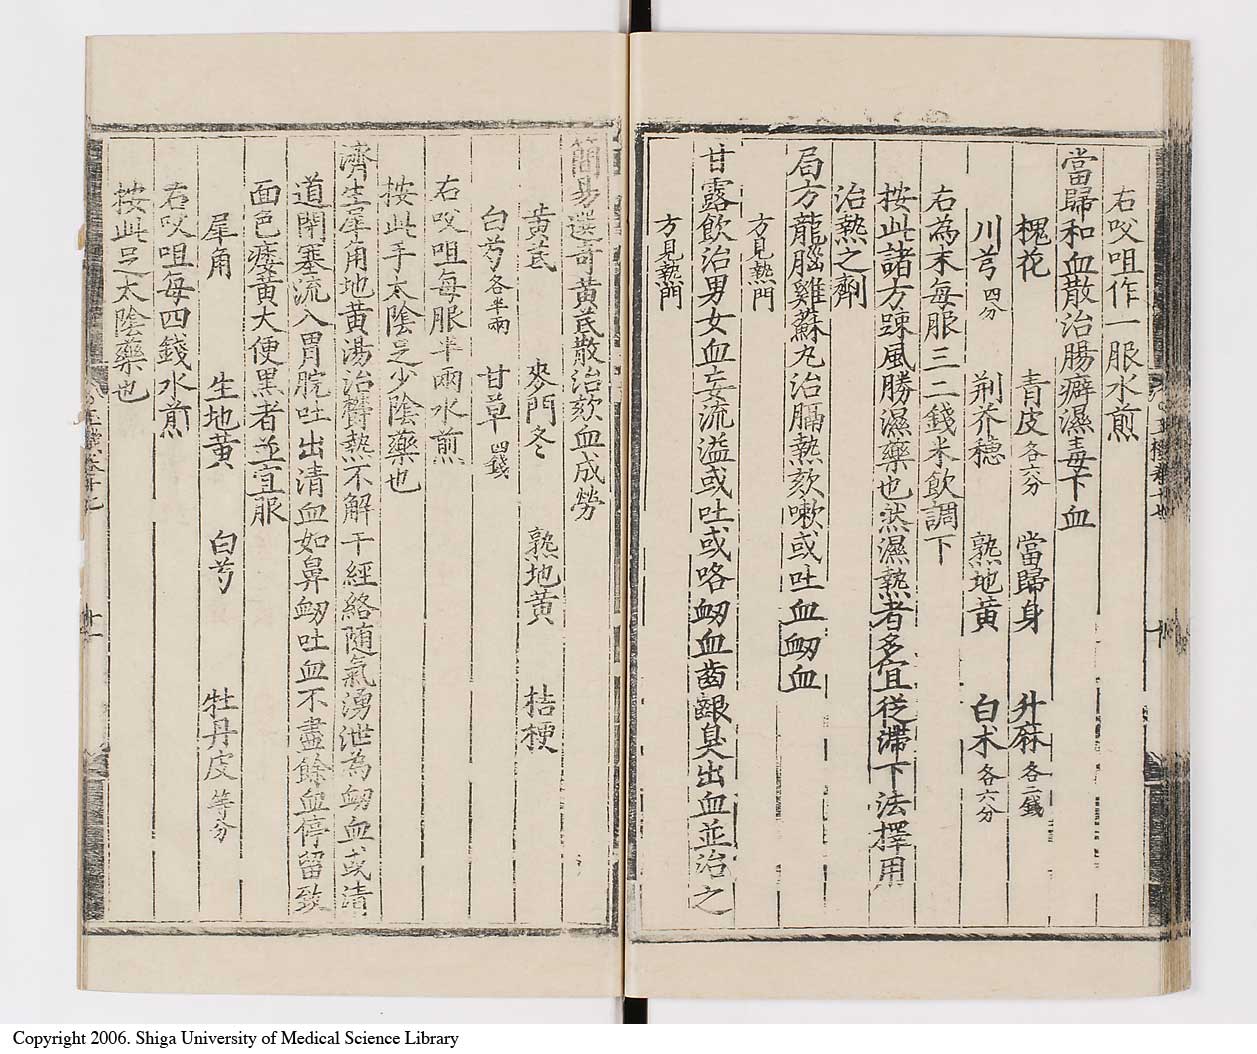 右㕮咀作一服水煎
當歸和血散治腸癖濕毒下血
槐花 青皮各六分 當歸身 升麻各二錢
川芎四分 荆芥穗 熟地黄 白朮各六分
右為末每服三二錢米飲調下
按此諸方踈風勝濕藥也然濕熱者多宜從滯下法擇用
治熱之劑
局方龍腦雞蘇丸治膈熱欬嗽或吐血衂血
方見熱門
甘露飲治男女血妄流溢或吐或咯衂血齒齦臭出血並治之
方見熱門
簡易選竒黄茋散治欬血成勞
黄茋 麥門冬 熟地黄 桔梗
白芍各半兩 甘草四錢
右㕮咀每服半兩水煎
按此手太陰足少陰藥也
濟生犀角地黄湯治鬱熱不解干經絡随氣湧泄為衂血或清
道閉塞流入胃脘吐出清血如鼻衂吐血不盡餘血停留致
面色痿黄大便黒者並宜服
犀角 生地黄 白芍 牡丹皮等分
右㕮咀每四錢水煎
按此足太陰藥也
十一
Copyright 2006. Shiga University of Medical Science Library